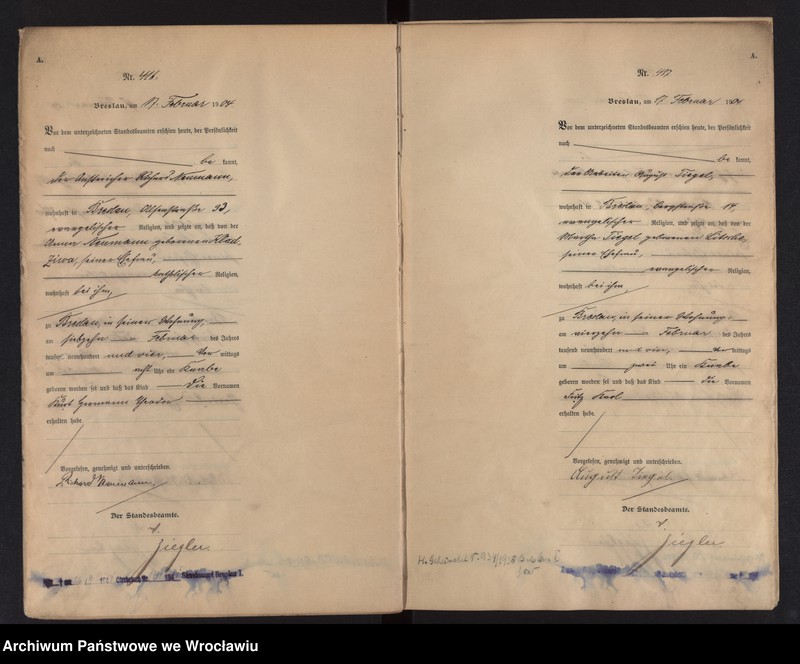 A.
Nr. 416.
Breslau, am 17. Februar 1904
Vor dem unterzeichneten Standesbeamten erschien heute, der Persönlichkeit
nach be kannt,
der Anstreicher Richard Neumann,
wohnhaft in Breslau, 93,
evangelischer Religion, und zeigte an, daß von der
Anna Neumann geborenen
seiner Ehefrau,
katholischer Religion,
wohnhaft bei ihm,
zu Breslau, in seiner Wohnung,
am siebzehn Februar des Jahres
tausend neunhundert und vier, Vor mittags
um acht Uhr ein Knabe
geboren worden sei und daß das Kind die Vornamen
Kurt Hermann
erhalten habe.
Vorgelesen, genehmigt und unterschrieben.
Richard Neumann.
Der Standesbeamte.
Ziegler
Standesamt Breslau I.
A.
Nr. 417
Breslau, am 17. Februar 1904
Vor dem unterzeichneten Standesbeamten erschien heute, der Persönlichkeit
nach be kannt,
der Arbeiter August
wohnhaft in Breslau, 14,
evangelischer Religion, und zeigte an, daß von der
Martha geborenen
seiner Ehefrau,
evangelischer Religion,
wohnhaft bei ihm,
zu Breslau, in seiner Wohnung,
am vierzehn Februar des Jahres
tausend neunhundert und vier, mittags
um zwei Uhr ein Knabe
geboren worden sei und daß das Kind die Vornamen
Fritz Karl
erhalten habe.
Vorgelesen, genehmigt und unterschrieben.
August
Der Standesbeamte.
Ziegler
Archiwum Państwowe we Wrocławiu